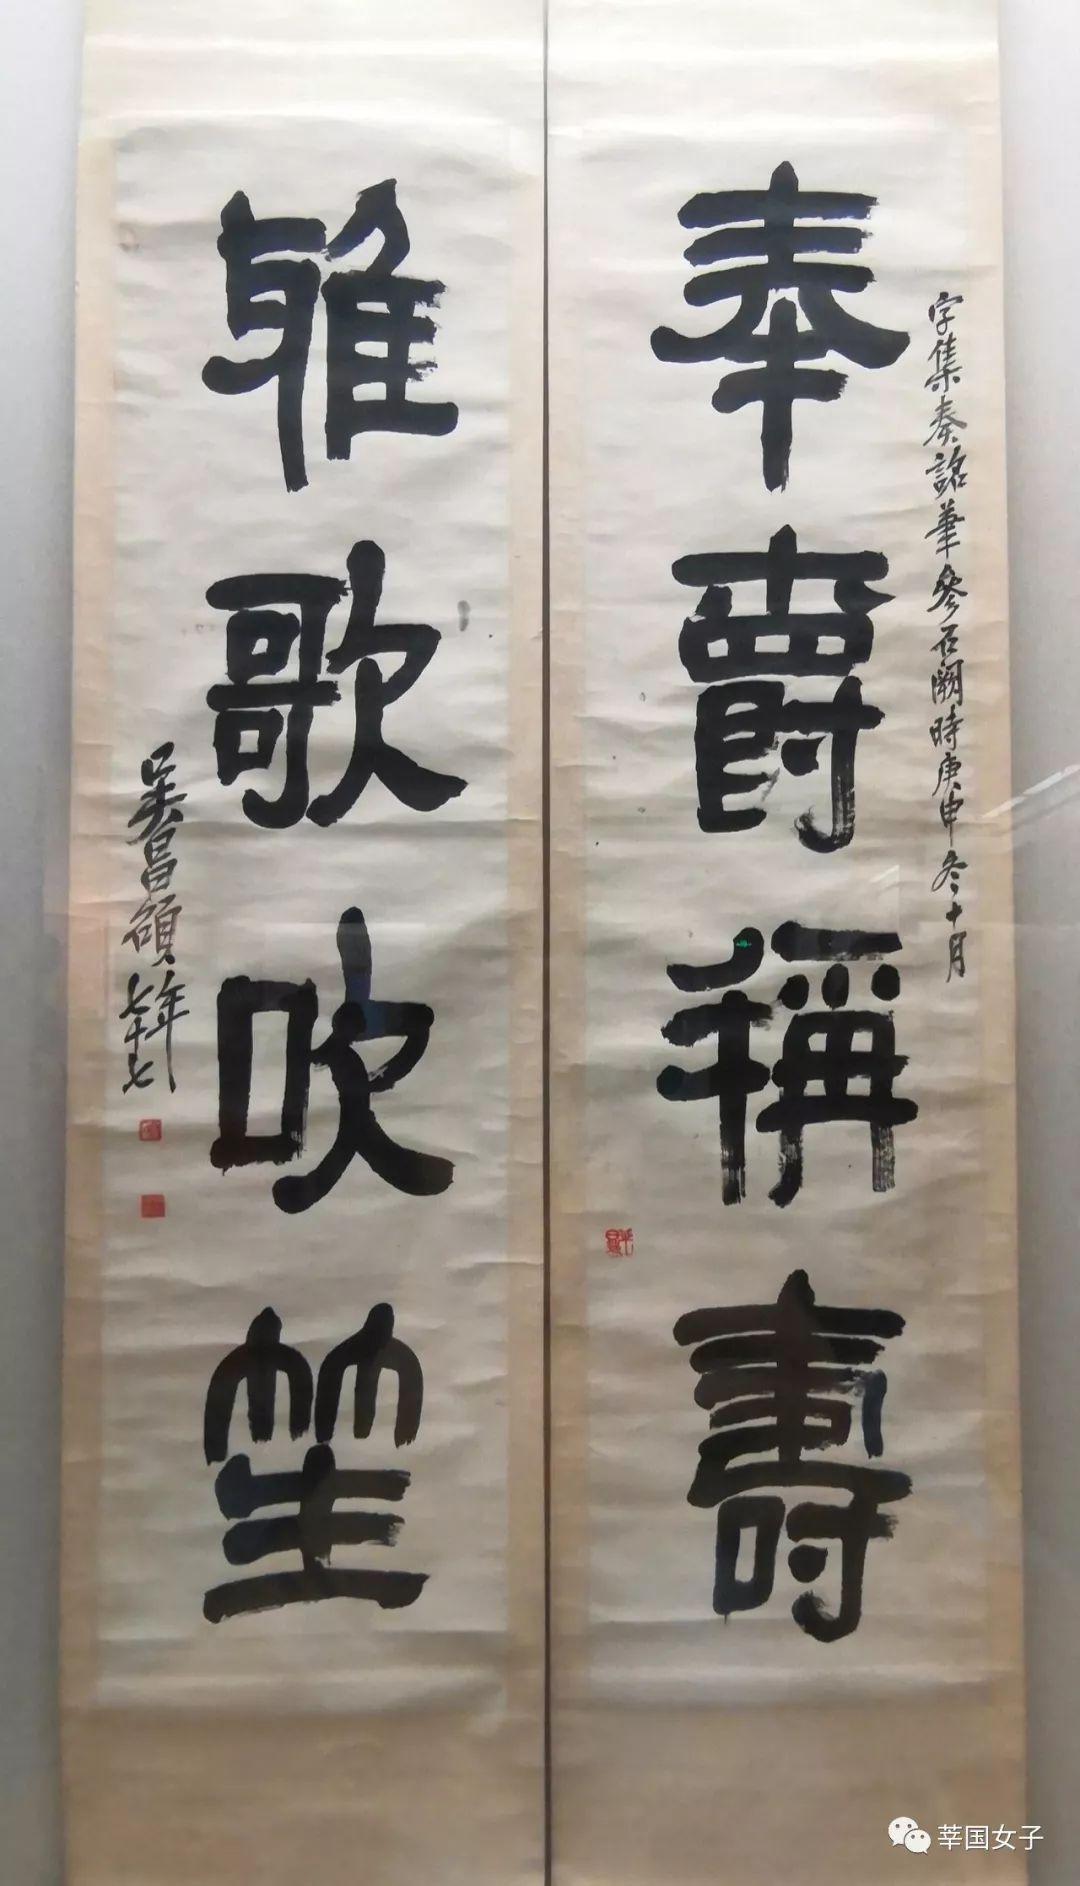 奉爵稱壽
字集秦詺筆參石闕時庚申冬十月
雅歌吹笙
吳昌碩年七十七
莘国女子